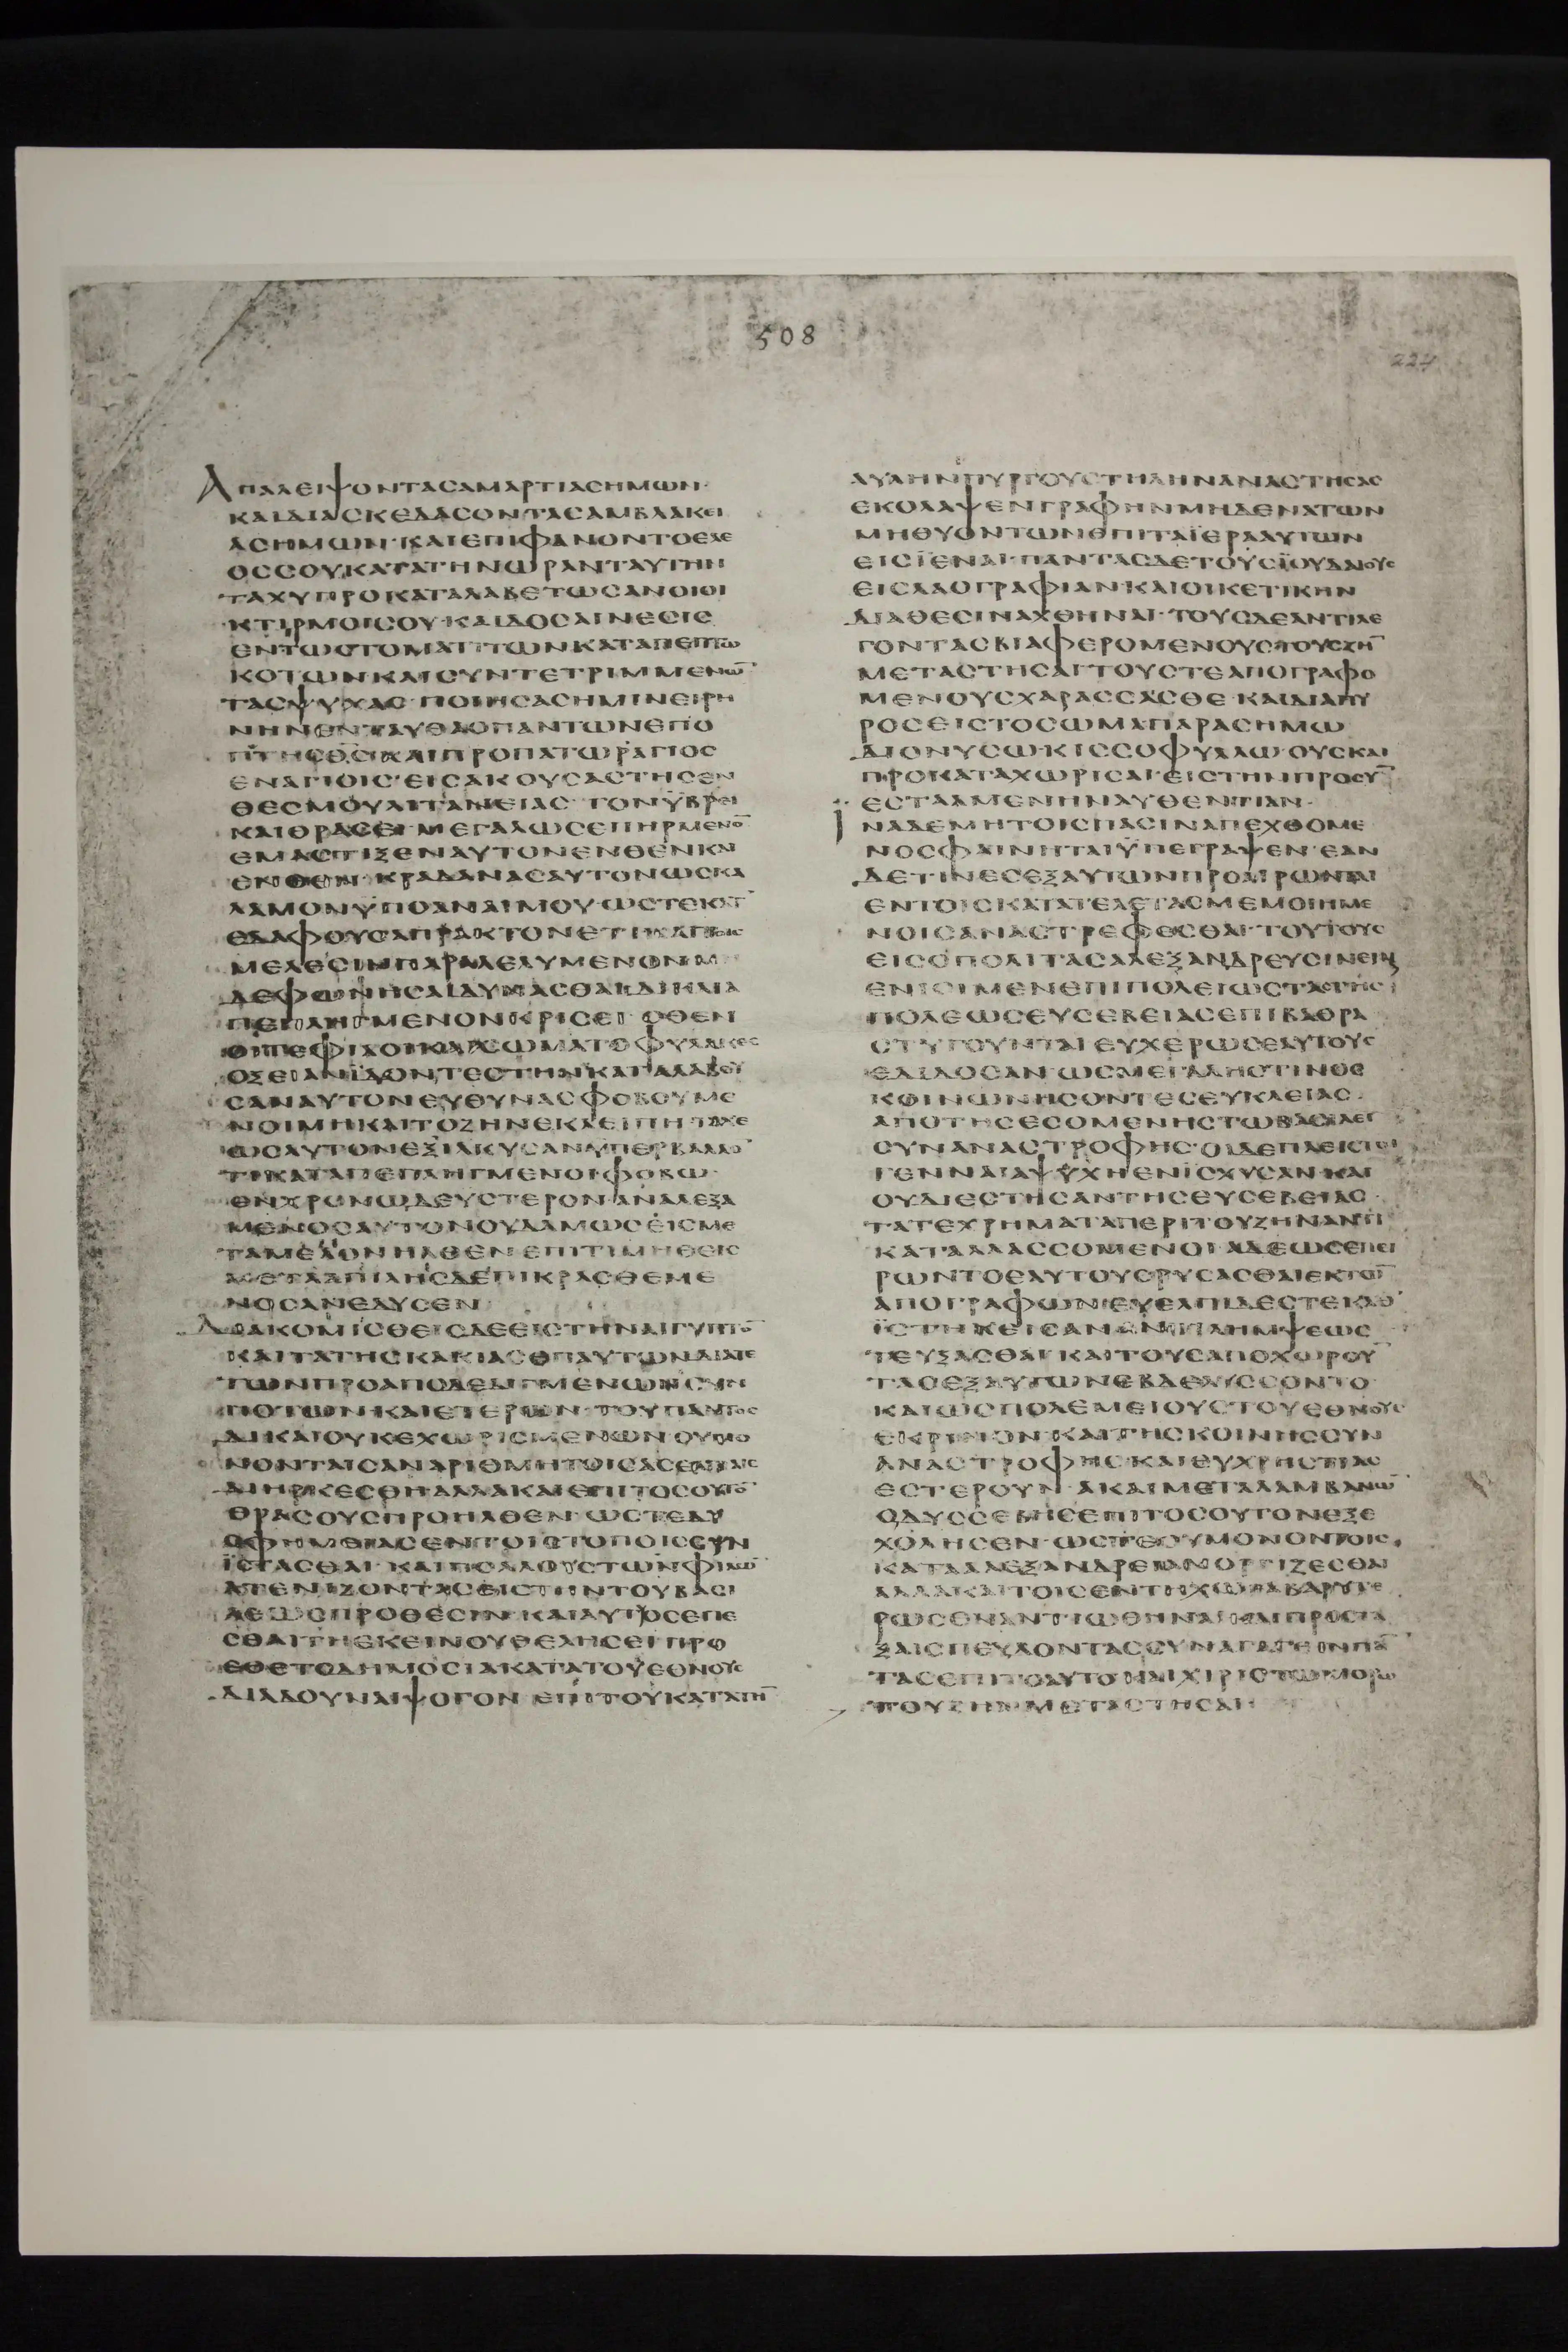 508
224
ΑΠΑΛΕΙΨΟΝΤΑΣΑΜΑΡΤΙΑΣΗΜΩΝ·
ΚΑΙΔΙΑΣΚΕΔΑΣΟΝΤΑΣΑΜΒΛΑΚΕΙ
ΑΣΗΜΩΝ·ΚΑΙΕΠΙΦΑΝΟΝΤΟΕΛΕ
ΟΣΣΟΥΚΑΤΑΤΗΝΩΡΑΝΤΑΥΤΗΝ
ΤΑΧΥΠΡΟΚΑΤΑΛΑΒΕΤΩΣΑΝΟΙΟΙ
ΚΤΙΡΜΟΙΣΟΥ·ΚΑΙΔΟΣΑΙΝΕΣΙΣ
ΕΝΤΩΣΤΟΜΑΤΙΤΩΝΚΑΤΑΠΕΠΤΩ
ΚΟΤΩΝΚΑΙΣΥΝΤΕΤΡΙΜΜΕΝΩ̅
ΤΑΣΨΥΧΑΣ·ΠΟΙΗΣΑΣΗΜΙΝΕΙΡΗ
ΝΗΝΕΝΤΑΥΘΑΟΠΑΝΤΩΝΕΠΟ
ΠΤΗΣΘ̅Σ̅ΚΑΙΠΡΟΠΑΤΩΡΑΓΙΟΣ
ΕΝΑΓΙΟΙΣ·ΕΙΣΑΚΟΥΣΑΣΤΗΣΕΝ
ΘΕΣΜΟΥΛΙΤΑΝΕΙΑΣ·ΤΟΝΫΒΡΕΙ
ΚΑΙΘΡΑΣΕΙΜΕΓΑΛΩΣΕΠΗΡΜΕΝΟ̅
ΕΜΑΣΤΙΞΕΝΑΥΤΟΝΕΝΘΕΝΚΑΙ
ΕΝΘΕΝ·ΚΡΑΔΑΝΑΣΑΥΤΟΝΩΣΚΑ
ΛΑΜΟΝΫΠΟΑΝΑΙΜΟΥ·ΩΣΤΕΚΑΤ
ΕΔΑΦΟΥΣΑΠΡΑΚΤΟΝΕΤΙΚΑΙΤΟΙΣ
ΜΕΛΕΣΙΝΠΑΡΑΛΕΛΥΜΕΝΟΝΜ
ΔΕΦΩΝΗΣΑΙΔΥΝΑΣΘΑΙΔΙΚΑΙΑ
ΠΕΠΛΗΓΜΕΝΟΝΚΡΙΣΕΙ·ΟΘΕΝ
ΟΙΤΕΦΙΛΟΙΚΑΙΣΩΜΑΤΟΦΥΛΑΚΕΣ
ΟΞΕΙΑΝΪΔΟΝΤΕΣΤΗΝΚΑΤΑΛΑΒΟΥ
ΣΑΝΑΥΤΟΝΕΥΘΥΝΑΣΦΟΒΟΥΜΕ
ΝΟΙΜΗΚΑΙΤΟΖΗΝΕΚΛΕΙΠΗΤΑΧΕ
ΩΣΑΥΤΟΝΕΞΙΛΚΥΣΑΝΥΠΕΡΒΑΛΛΟ̅
ΤΙΚΑΤΑΠΕΠΛΗΓΜΕΝΟΙΦΟΒΩ·
ΕΝΧΡΟΝΩΔΕΥΣΤΕΡΟΝΑΝΑΛΕΞΑ
ΜΕΝΟΣΑΥΤΟΝΟΥΔΑΜΩΣΕΙΣΜΕ
ΤΑΜΕΛΟΝΗΛΘΕΝΕΠΙΤΙΜΗΘΕΙΣ
ΜΕΤΑΑΠΙΛΗΣΔΕΠΙΚΡΑΣΘΕΜΕ
ΝΟΣΑΝΕΛΥΣΕΝ
ΔΙΑΚΟΜΙΣΘΕΙΣΔΕΕΙΣΤΗΝΑΙΓΥΠΤΟ̅
ΚΑΙΤΑΤΗΣΚΑΚΙΑΣΕΠΑΥΤΩΝΔΙΑΤΕ
ΤΩΝΠΡΟΑΠΟΔΕΔΙΓΜΕΝΩΝΣΥΝ
ΠΟΤΩΝΚΑΙΕΤΕΡΩΝ·ΤΟΥΠΑΝΤΟΣ
ΔΙΚΑΙΟΥΚΕΧΩΡΙΣΜΕΝΩΝΟΥΜΟ
ΝΟΝΤΑΙΣΑΝΑΡΙΘΜΗΤΟΙΣΑΣΕΛΓΙΑΙΣ
ΔΙΗΡΚΕΣΘΗΑΛΛΑΚΑΙΕΠΙΤΟΣΟΥΤΟ̅
ΘΡΑΣΟΥΣΠΡΟΗΛΘΕΝ·ΩΣΤΕΔΥ
ΣΦΗΜΕΙΑΣΕΝΤΟΙΣΤΟΠΟΙΣΣΥΝ
ΪΣΤΑΣΘΑΙ·ΚΑΙΠΟΛΛΟΥΣΤΩΝΦΙΛΩ̅
ΑΤΕΝΙΖΟΝΤΑΣΕΙΣΤΗΝΤΟΥΒΑΣΙ
ΛΕΩΣΠΡΟΘΕΣΙΝΚΑΙΑΥΤΟΣΕΠΕ
ΣΘΑΙΤΗΕΚΕΙΝΟΥΘΕΛΗΣΕΙΠΡΟ
ΕΘΕΤΟΔΗΜΟΣΙΑΚΑΤΑΤΟΥΕΘΝΟΥΣ
ΔΙΑΔΟΥΝΑΙΨΟΓΟΝ·ΕΠΙΤΟΥΚΑΤΑΤΗ̅
ΑΥΛΗΝΠΥΡΓΟΥΣΤΗΛΗΝΑΝΑΣΤΗΣΑΣ
ΕΚΟΛΑΨΕΝΓΡΑΦΗΝΜΗΔΕΝΑΤΩΝ
ΜΗΘΥΟΝΤΩΝΕΠΙΤΑΪΕΡΑΑΥΤΩΝ
ΕΙΣΪΕΝΑΙ·ΠΑΝΤΑΣΔΕΤΟΥΣΪΟΥΔΑΙΟΥΣ
ΕΙΣΛΑΟΓΡΑΦΙΑΝ·ΚΑΙΟΙΚΕΤΙΚΗΝ
ΔΙΑΘΕΣΙΝΑΧΘΗΝΑΙ·ΤΟΥΣΔΕΑΝΤΙΛΕ
ΓΟΝΤΑΣΒΙΑΦΕΡΟΜΕΝΟΥΣΤΟΥΖΗ̅
ΜΕΤΑΣΤΗΣΑΙΤΟΥΣΤΕΑΠΟΓΡΑΦΟ
ΜΕΝΟΥΣΧΑΡΑΣΣΑΣΘΕ·ΚΑΙΔΙΑΠΥ
ΡΟΣΕΙΣΤΟΣΩΜΑΠΑΡΑΣΗΜΩ
ΔΙΟΝΥΣΩ·ΚΙΣΣΟΦΥΛΛΩ·ΟΥΣΚΑΙ
ΠΡΟΚΑΤΑΧΩΡΙΣΑΙ·ΕΙΣΤΗΝΠΡΟΣΥ̅
ΕΣΤΑΛΜΕΝΗΝΑΥΘΕΝΤΙΑΝ·
ΪΝΑΔΕΜΗΤΟΙΣΠΑΣΙΝΑΠΕΧΘΟΜΕ
ΝΟΣΦΑΙΝΗΤΑΙΫΠΕΓΡΑΨΕΝ·ΕΑΝ
ΔΕΤΙΝΕΣΕΞΑΥΤΩΝΠΡΟΑΙΡΩΝΤΑΙ
ΕΝΤΟΙΣΚΑΤΑΤΕΛΕΤΑΣΜΕΜΟΙΗΜΕ
ΝΟΙΣΑΝΑΣΤΡΕΦΕΣΘΑΙ·ΤΟΥΤΟΥΣ
ΕΙΣΟΠΟΛΙΤΑΣΑΛΕΞΑΝΔΡΕΥΣΙΝΕΙΝ
ΕΝΙΟΙΜΕΝΕΠΙΠΟΛΕΙΩΣΤΑΣΤΗΣ
ΠΟΛΕΩΣΕΥΣΕΒΕΙΑΣΕΠΙΒΑΘΡΑ
ΣΤΥΓΟΥΝΤΑΙΕΥΧΕΡΩΣΕΑΥΤΟΥΣ
ΕΔΙΔΟΣΑΝ·ΩΣΜΕΓΑΛΗΣΤΙΝΟΣ
ΚΟΙΝΩΝΗΣΟΝΤΕΣΕΥΚΛΕΙΑΣ·
ΑΠΟΤΗΣΕΣΟΜΕΝΗΣΤΩΒΑΣΙΛΕΙ
ΣΥΝΑΝΑΣΤΡΟΦΗΣ·ΟΙΔΕΠΛΕΙΣΤΟΙ
ΓΕΝΝΑΙΑΨΥΧΗΕΝΪΣΧΥΣΑΝ·ΚΑΙ
ΟΥΔΙΕΣΤΗΣΑΝΤΗΣΕΥΣΕΒΕΙΑΣ·
ΤΑΤΕΧΡΗΜΑΤΑΠΕΡΙΤΟΥΖΗΝΑΝΤΙ
ΚΑΤΑΛΛΑΣΣΟΜΕΝΟΙΑΔΕΩΣΕΠΕΙ
ΡΩΝΤΟΕΑΥΤΟΥΣΡΥΣΑΣΘΑΙΕΚΤΩ̅
ΑΠΟΓΡΑΦΩΝΕΥΕΛΠΙΔΕΣΤΕΚΑΘ
ΪΣΤΗΚΕΙΣΑΝΑΝΤΙΛΗΜΨΕΩΣ
ΤΕΥΞΑΣΘΑΙ·ΚΑΙΤΟΥΣΑΠΟΧΩΡΟΥ̅
ΤΑΣΕΞΑΥΤΩΝΕΒΔΕΛΥΣΣΟΝΤΟ
ΚΑΙΩΣΠΟΛΕΜΕΙΟΥΣΤΟΥΕΘΝΟΥΣ
ΕΚΡΙΝΟΝ·ΚΑΙΤΗΣΚΟΙΝΗΣΣΥΝ
ΑΝΑΣΤΡΟΦΗΣΚΑΙΕΥΧΡΗΣΤΙΑΣ
ΕΣΤΕΡΟΥΝ·ΑΚΑΙΜΕΤΑΛΑΜΒΑΝΩ̅
ΟΔΥΣΣΕΒΗΣΕΠΙΤΟΣΟΥΤΟΝΕΞΕ
ΧΟΛΗΣΕΝ·ΩΣΤΕΟΥΜΟΝΟΝΤΟΙΣ
ΚΑΤΑΑΛΕΞΑΝΔΡΕΙΑΝΟΡΓΙΖΕΣΘΑΙ
ΑΛΛΑΚΑΙΤΟΙΣΕΝΤΗΧΩΡΑΒΑΡΥΤΕ
ΡΩΣΕΝΑΝΤΙΩΘΗΝΑΙ·ΚΑΙΠΡΟΣΤΑ
ΞΑΙΣΠΕΥΔΟΝΤΑΣΣΥΝΑΓΑΓΕΙΝΠΑ̅
ΤΑΣΕΠΙΤΟΑΥΤΟΚΑΙΧΙΡΙΣΤΩΜΟΡΩ
ΤΟΥΖΗΝΜΕΤΑΣΤΗΣΑΙ